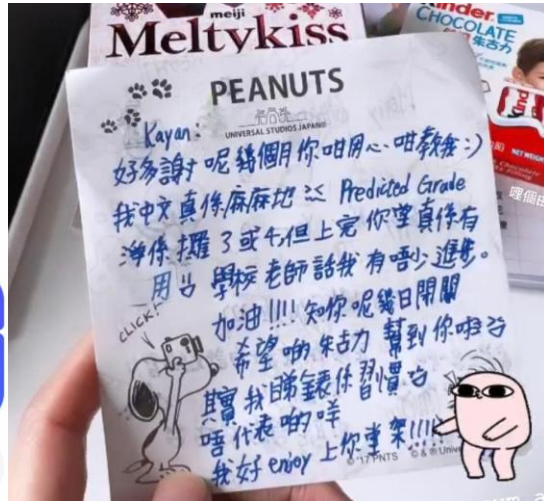 meiji
Meltykiss
Kinder
CHOCOLATE
朱古力
NET WEIGHT
PEANUTS
UNIVERSAL STUDIOS JAPAN®
Kayan:
好多謝呢幾個月你咁用心咁教我:)
我中文真係麻麻地 Predicted Grade
淨係攞 3 或 4,但上完你堂真係有
用 學校老師話我有唔少進步。
加油!!!! 知你呢幾日閉關
希望啲朱古力幫到你啦
CLICK!
其實我睇錶係習慣
唔代表啲咩
我好 enjoy 上你堂架!!!!
'17 PNTS © & ® Univ